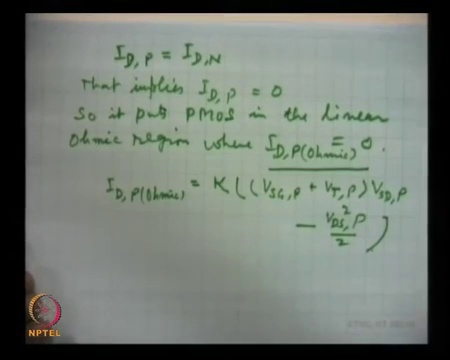 I_D,P = I_D,N
That implies I_D,P = 0
So it puts PMOS in the linear
Ohmic region where I_D,P(Ohmic) = 0.
I_D,P(Ohmic) = K((V_SG,P + V_T,P) V_SD,P
− V_DS²,P / 2)
NPTEL